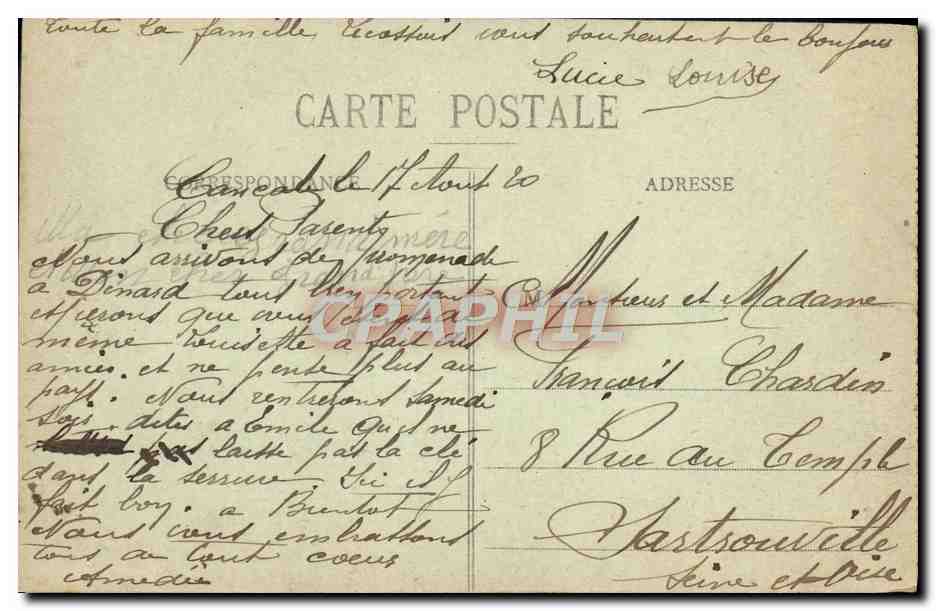 toute la famille vous souhaitent le bonjour
Lucie Louise
CARTE POSTALE
CORRESPONDANCE
ADRESSE
Cancale le 17 Aout 20
Chers Parents
Nous arrivons de promenade
a Dinard tous bien portant
et
même Louisette a fait des
amies. et ne pense plus au
pays. Nous rentrerons Samedi
soir. dites a Emile qu'il ne
laisse pas la clé
dans la serrure. Ici il
fait bon. a Bientot
Nous vous embrassons
tous de tout coeur
Amedée
Monsieur et Madame
François Chardin
8 Rue du Temple
Sartrouville
Seine et Oise
CPAPHIL